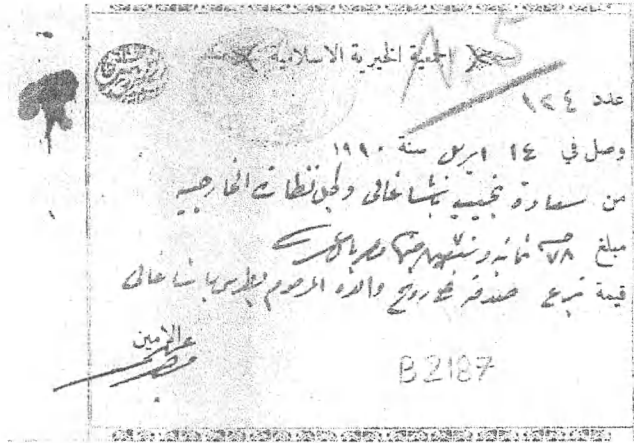 الجمعية الخيرية الاسلامية
A. 5
عدد ١٢٤
وصل في ١٤ ابريل سنة ١٩١٠
من سعادة نجيب باشا غالى وكيل نظارة الخارجيه
مبلغ ٧٨ ثمانية وسبعون
قيمة تبرع صدقة على روح والده المرحوم بطرس باشا غالى
الامين
B2187